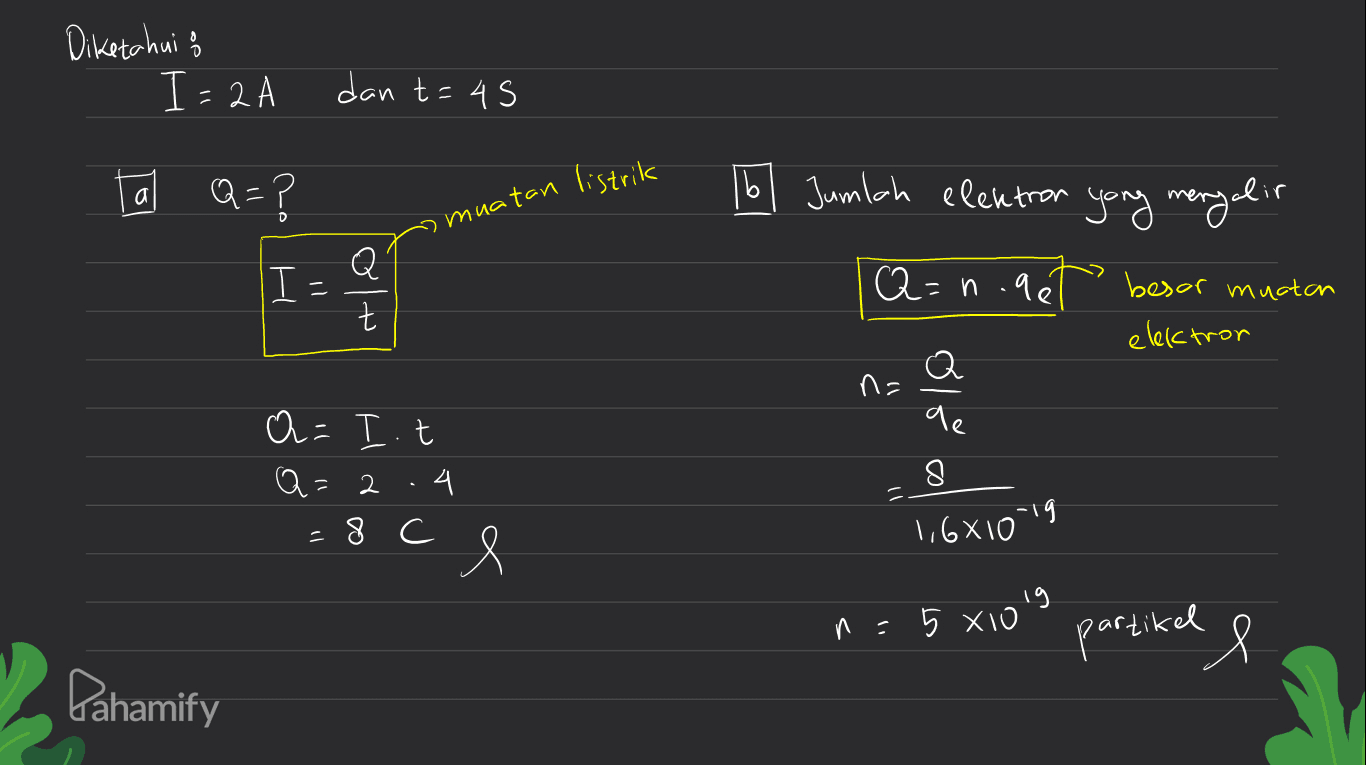 Diketahui :
I = 2A dan t = 4 S
a Q = ?
I = Q / t
muatan listrik
Q = I . t
Q = 2 . 4
= 8 C
b Jumlah elektron yang mengalir
Q = n . qe
besar muatan
elektron
n = Q / qe
= 8 / 1,6 X 10⁻¹⁹
n = 5 X 10¹⁹ partikel
Pahamify